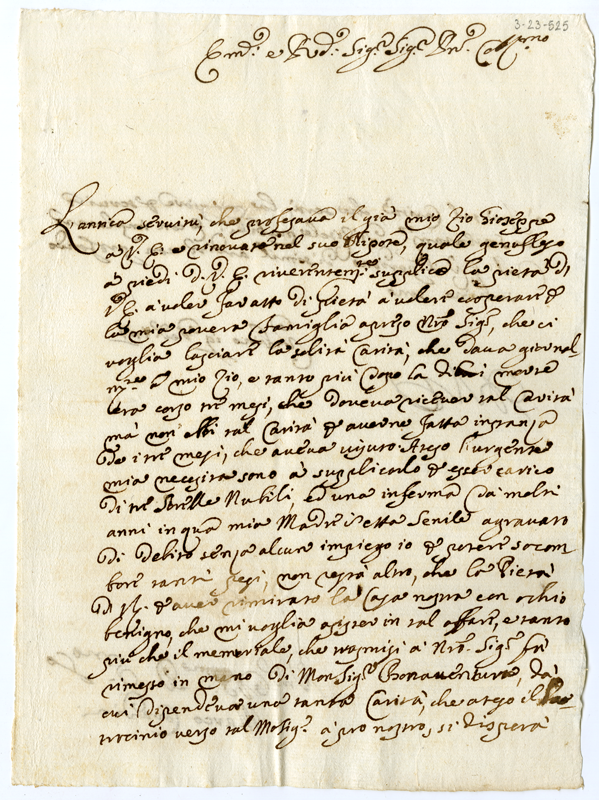 3-23-525
Em.o e Rvd.o Sig.r Sig.r Pn.e Col.mo
L'antica servitù, che professava il già mio Zio Gioseppe
à V. E. e rinovare nel suo Nipote, quale genuflesso
à piedi D. V. E. riverentem.te supplico la pietà di
V. E. à voler far atto di pietà à volere cooperare p
la mia povera famiglia apreso Nro Sig.r, che ci
voglia lasciare la solità Carità, che dava giornal
m.te à mio Zio, e tanto più dopo la di lui morte
era corso tre mesi, che doveva ricever tal Carità
mà non ebbi tal Carità p averne fatta instanza
de i tre mesi, che aveva vissuto. Ateso l'urgente
mia necesità sono à supplicarlo p esser carico
di tre Sorelle Nubili, ed una inferma da molti
anni in quà mia Madre d'età Senile agravato
di debiti senza alcun impiego io p potere socom
bere tanti pesi, non restà altro, che la Pietà
D. V. E. d'aver rimirato la Casa nostra con ochio
benigno, che mi voglia asister in tal affare, e tanto
più che il memoriale, che trasmisi à Nro. Sig.r fù
rimesso in mano di Mon Sig.r Bonaventura, dà
cui dipendeva una tanta Carità, che ateso il Pa-
trocinio verso tal Mosig.r à pro nostro, si dispera